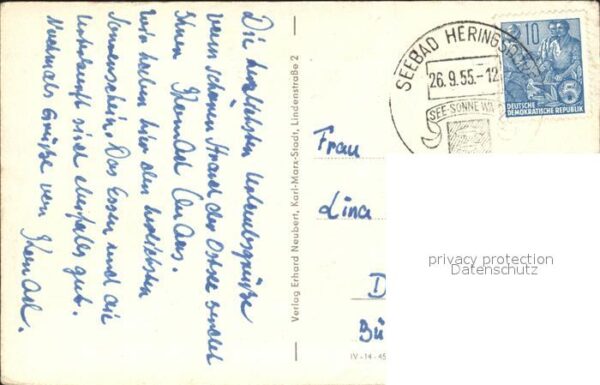 Die herzlichsten Urlaubsgrüße
vom schönen Strand der Ostsee sendet
Ihnen
Wir haben hier den herrlichsten
Sonnenschein. Das Essen und die
Unterkunft sind ebenfalls gut.
Nochmals Grüße von
Verlag Erhard Neubert, Karl-Marx-Stadt, Lindenstraße 2
IV-14-45
SEEBAD HERINGSDORF
26.9.55.-12
SEE-SONNE
10
5
DEUTSCHE
DEMOKRATISCHE REPUBLIK
Frau
Lina
D
Bü
privacy protection
Datenschutz